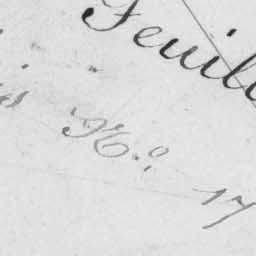 Feuill
is No. 17